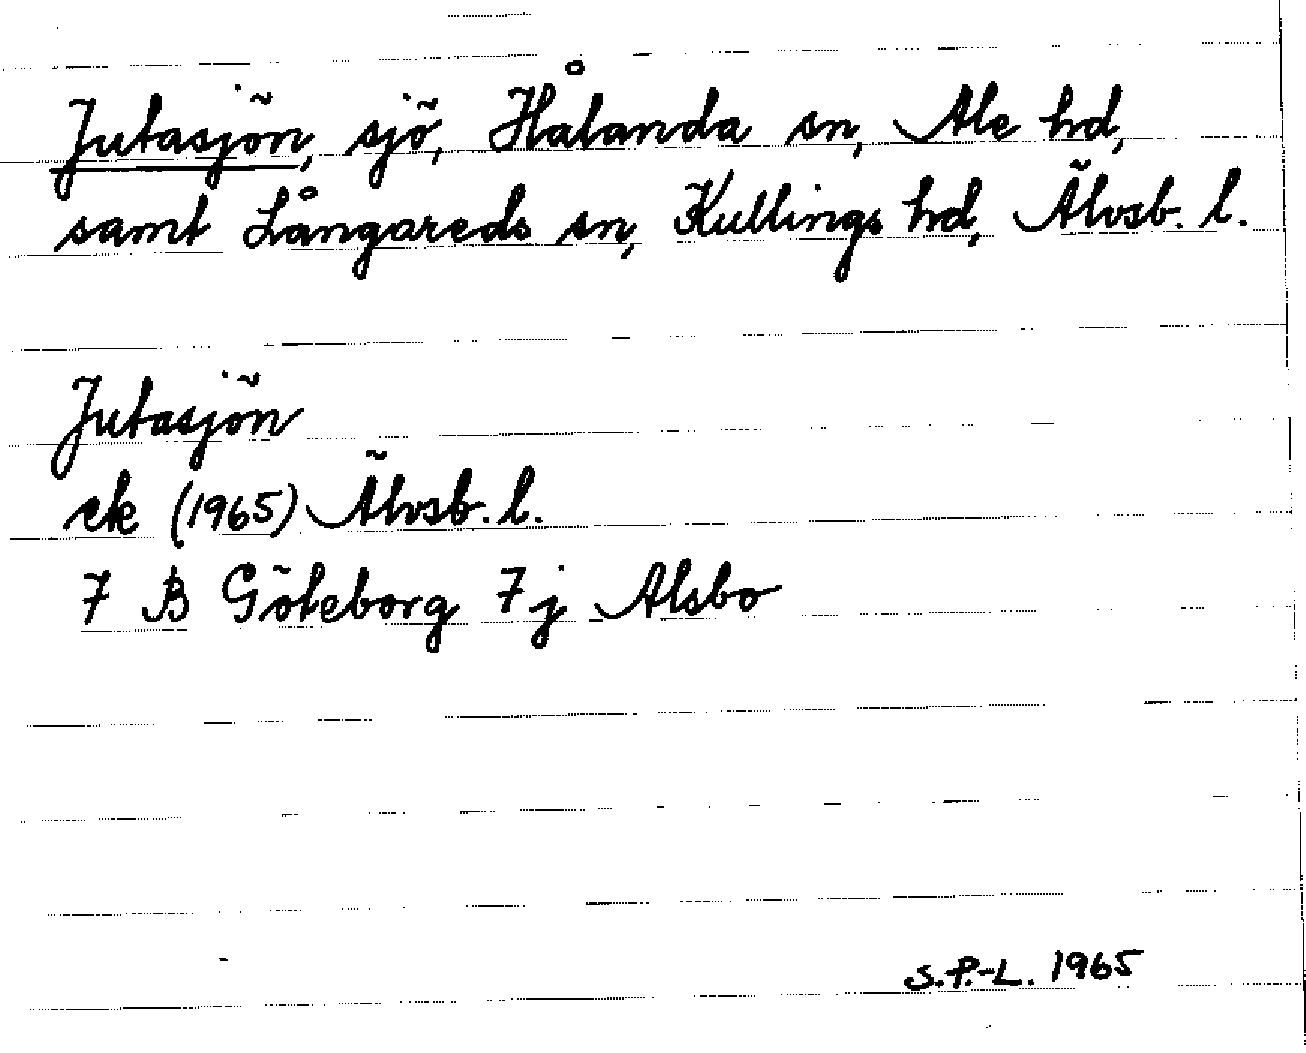 Jutasjön, sjö, Hålanda sn, Ale hd,
samt Långareds sn, Kullings hd, Älvsb. l.
Jutasjön
ek (1965) Älvsb. l.
7 B Göteborg 7 j Alsbo
S.P.-L. 1965